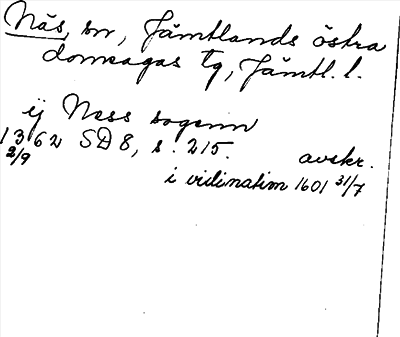 Näs, sn, Jämtlands östra
domsagas tg, Jämtl. l.
ij Ness sogenn
1362 SD 8, s. 215. avskr.
2/9
i vidimation 1601 31/7